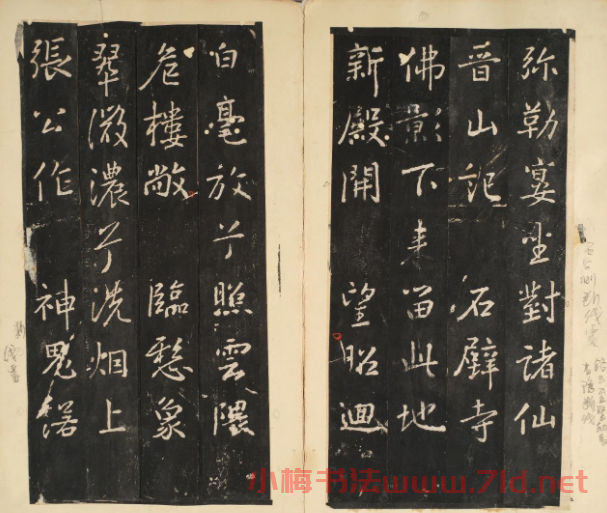 弥勒宴坐對諸仙
晋山記 石壁寺
佛影下来留此地
新殿開 望昭迴
白毫放兮照雲隈
危樓敞 臨懸象
翠微濃兮洗烟上
張公作 神鬼諾
小梅书法www.7ld.net